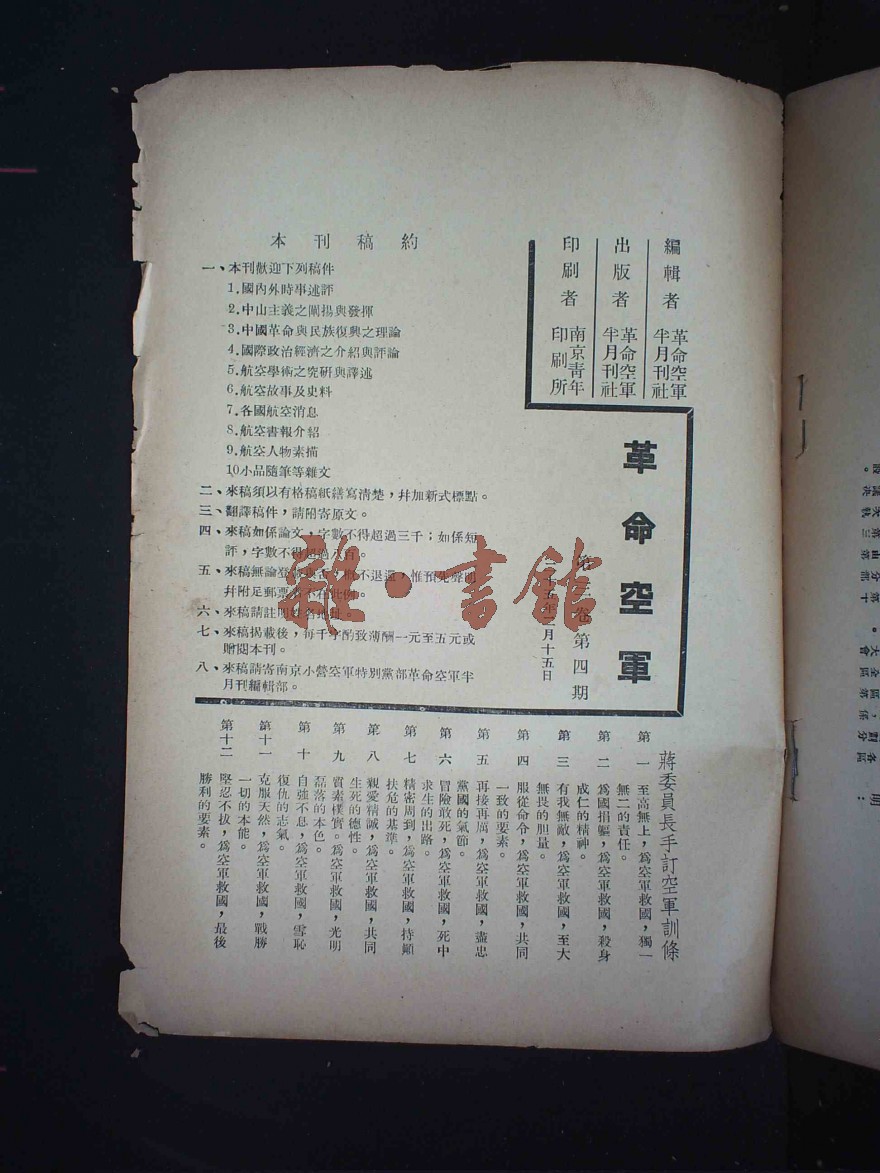 編輯者 革命空軍半月刊社
出版者 革命空軍半月刊社
印刷者 南京青年印刷所
革命空軍
卷第四期
五年 月十五日
本刊稿約
一、本刊歡迎下列稿件
1.國內外時事述評
2.中山主義之闡揚與發揮
3.中國革命與民族復興之理論
4.國際政治經濟之介紹與評論
5.航空學術之究研與譯述
6.航空故事及史料
7.各國航空消息
8.航空書報介紹
9.航空人物素描
10小品隨筆等雜文
二、來稿須以有格稿紙繕寫清楚，幷加新式標點。
三、翻譯稿件，請附寄原文。
四、來稿如係論文，字數不得超過三千；如係短
評，字數不得超過八百。
五、來稿無論登載與否，概不退還，惟預先聲明
幷附足郵票者不在此例。
六、來稿請註明姓名地址。
七、來稿揭載後，每千字酌致薄酬一元至五元或
贈閱本刊。
八、來稿請寄南京小營空軍特別黨部革命空軍半
月刊編輯部。
雜·書館
蔣委員長手訂空軍訓條
第一 至高無上，爲空軍救國，獨一
無二的責任。
第二 爲國捐軀，爲空軍救國，殺身
成仁的精神。
第三 有我無敵，爲空軍救國，至大
無畏的胆量。
第四 服從命令，爲空軍救國，共同
一致的要素。
第五 再接再厲，爲空軍救國，盡忠
黨國的氣節。
第六 冒險敢死，爲空軍救國，死中
求生的出路。
第七 精密周到，爲空軍救國，持顚
扶危的基準。
第八 親愛精誠，爲空軍救國，共同
生死的德性。
第九 質素樸實。爲空軍救國，光明
磊落的本色。
第十 自強不息，爲空軍救國，雪恥
復仇的志氣。
第十一 克服天然，爲空軍救國，戰勝
一切的本能。
第十二 堅忍不拔，爲空軍救國，最後
勝利的要素。